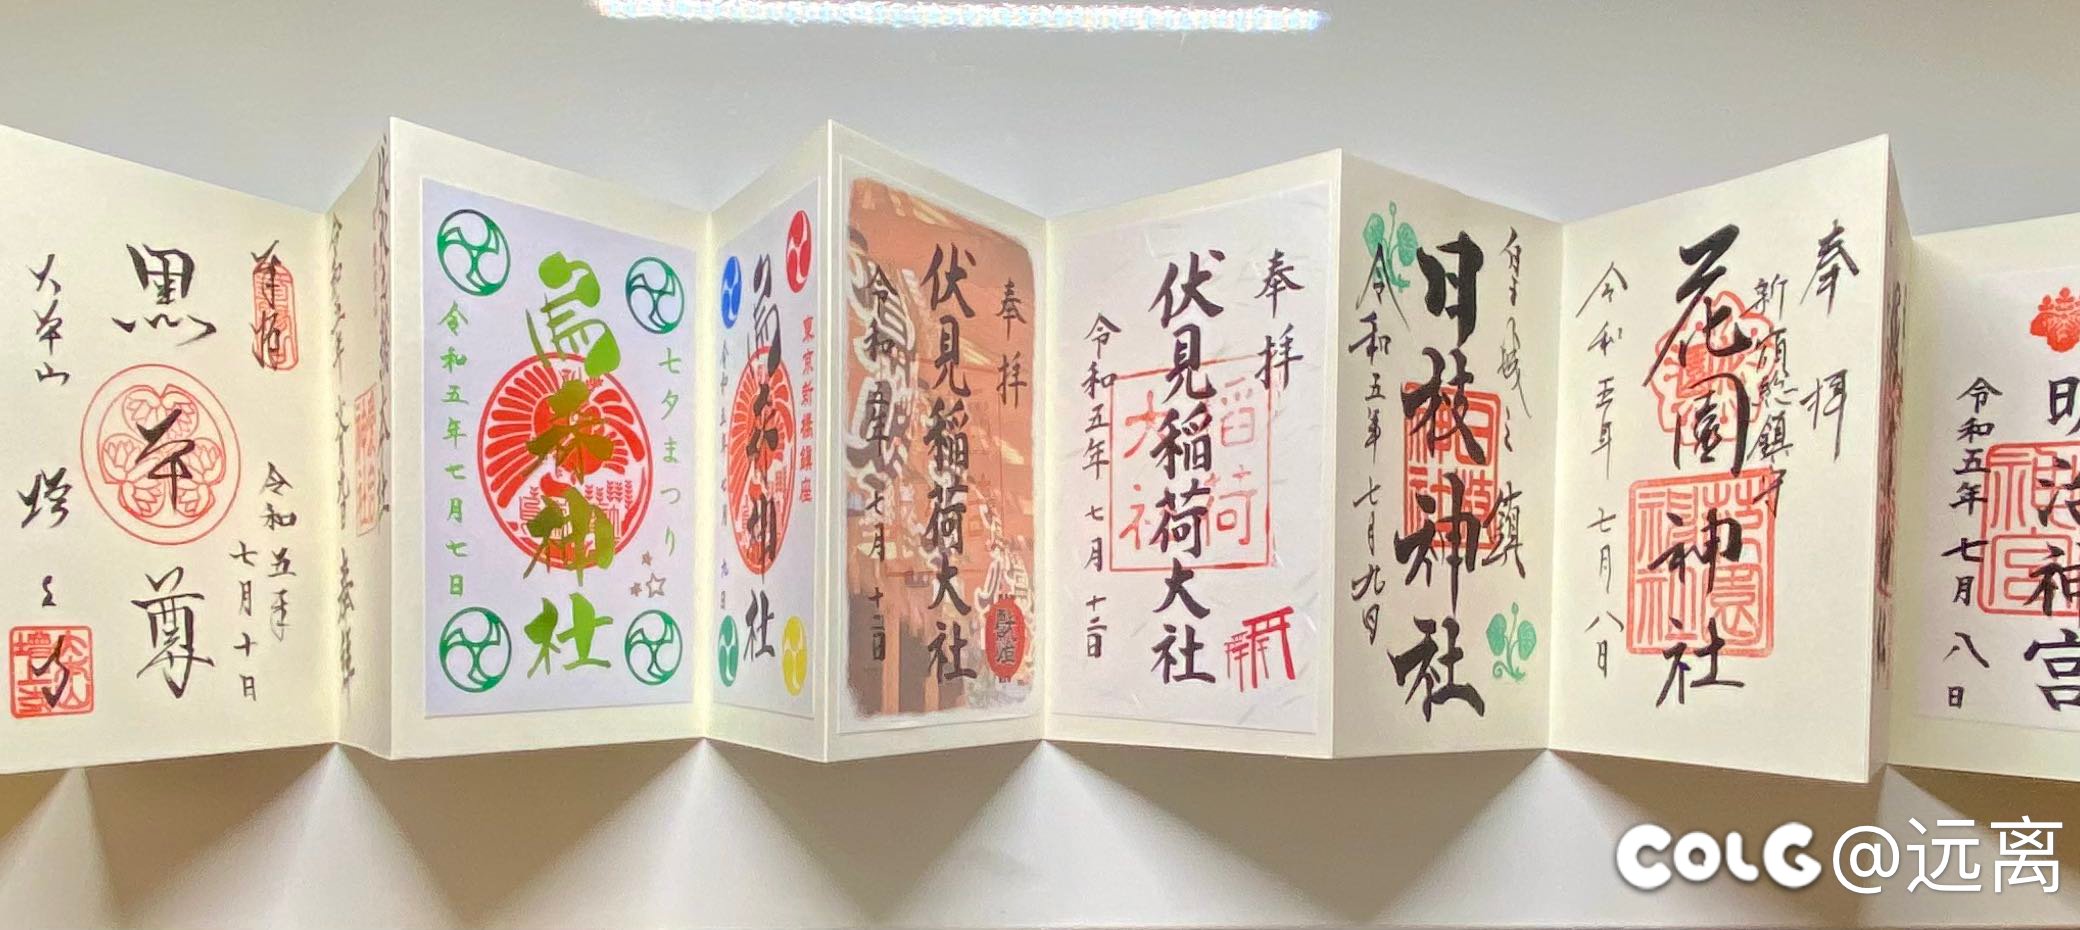 奉拝
黒本尊
令和五年
七月十日
奉拝
烏森神社
七夕まつり
令和五年七月七日
東京新橋鎮座
烏森神社
令和五年七月九日
奉拝
伏見稲荷大社
令和五年七月十二日
奉拝
伏見稲荷大社
稲荷
大社
令和五年七月十二日
日枝神社
令和五年七月九日
奉拝
新宿総鎮守
花園神社
令和五年七月八日
明治神宮
令和五年七月八日
COLG@远离